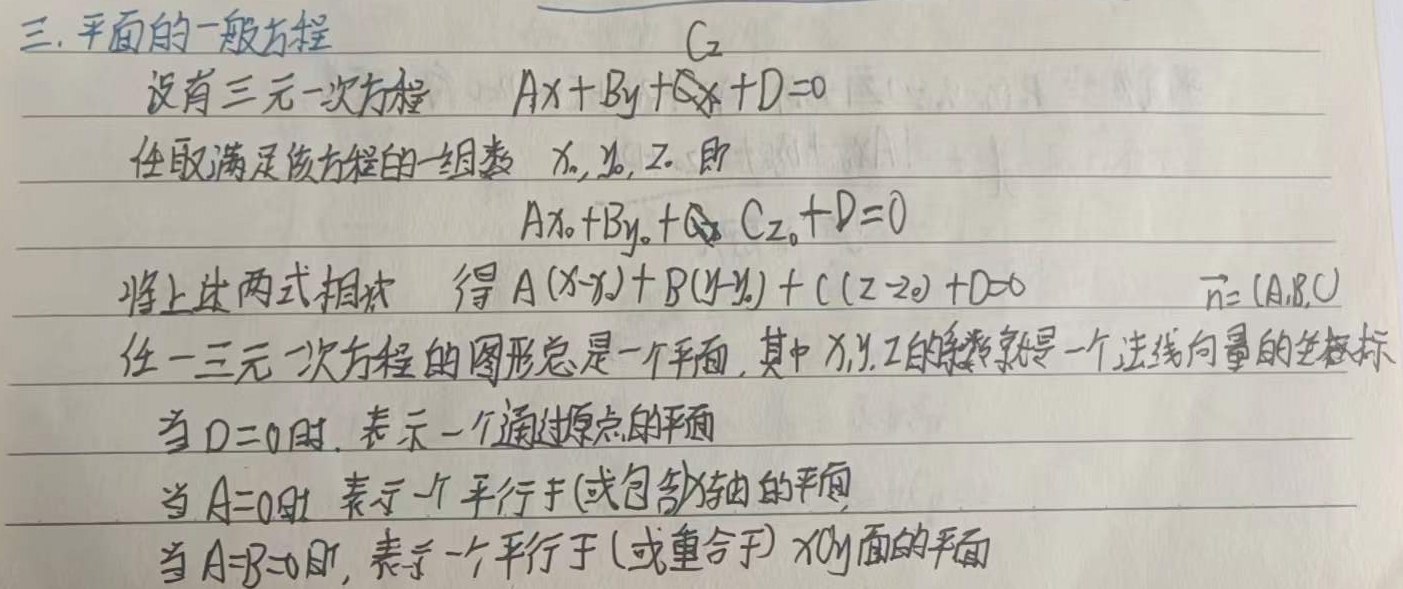 三.平面的一般方程
设有三元一次方程 Ax+By+Cz+D=0
任取满足该方程的一组数 x₀, y₀, z₀ 即
Ax₀+By₀+Cz₀+D=0
将上述两式相减 得 A(x-x₀)+B(y-y₀)+C(z-z₀)+D=0 n⃗=(A,B,C)
任一三元一次方程的图形总是一个平面,其中x,y,z的系数就是一个法线向量的坐标
当D=0时.表示一个通过原点的平面
当A=0时 表示一个平行于(或包含)x轴的平面
当A=B=0时,表示一个平行于(或重合于)xOy面的平面